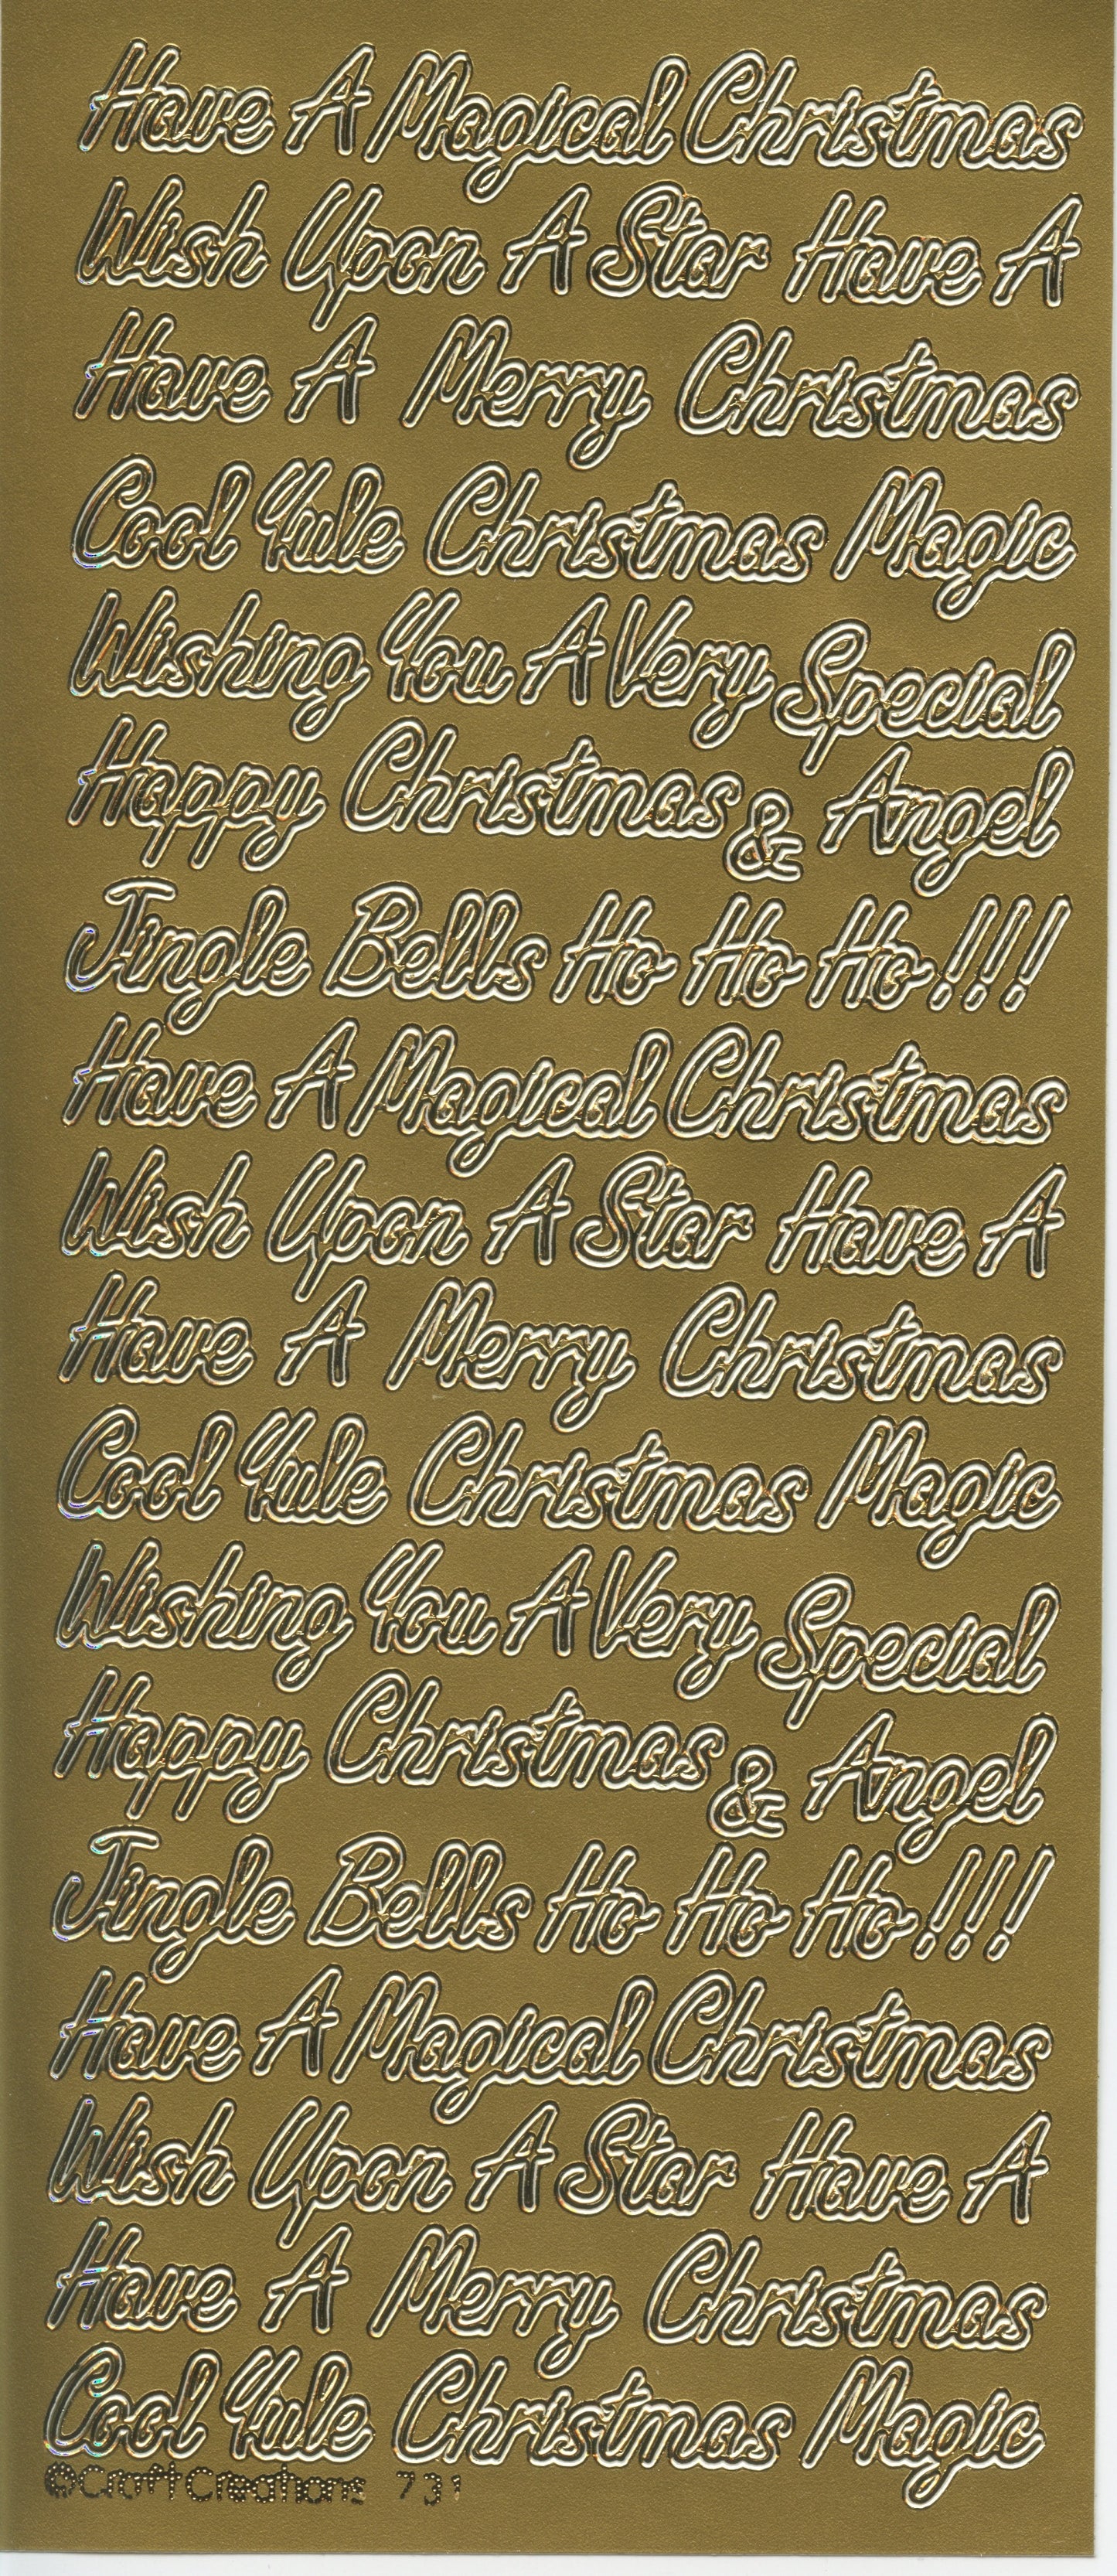 Have A Magical Christmas
Wish Upon A Star Have A
Have A Merry Christmas
Cool Yule Christmas Magic
Wishing You A Very Special
Happy Christmas & Angel
Jingle Bells Ho Ho Ho!!!
Have A Magical Christmas
Wish Upon A Star Have A
Have A Merry Christmas
Cool Yule Christmas Magic
Wishing You A Very Special
Happy Christmas & Angel
Jingle Bells Ho Ho Ho!!!
Have A Magical Christmas
Wish Upon A Star Have A
Have A Merry Christmas
Cool Yule Christmas Magic
©Craft Creations 731